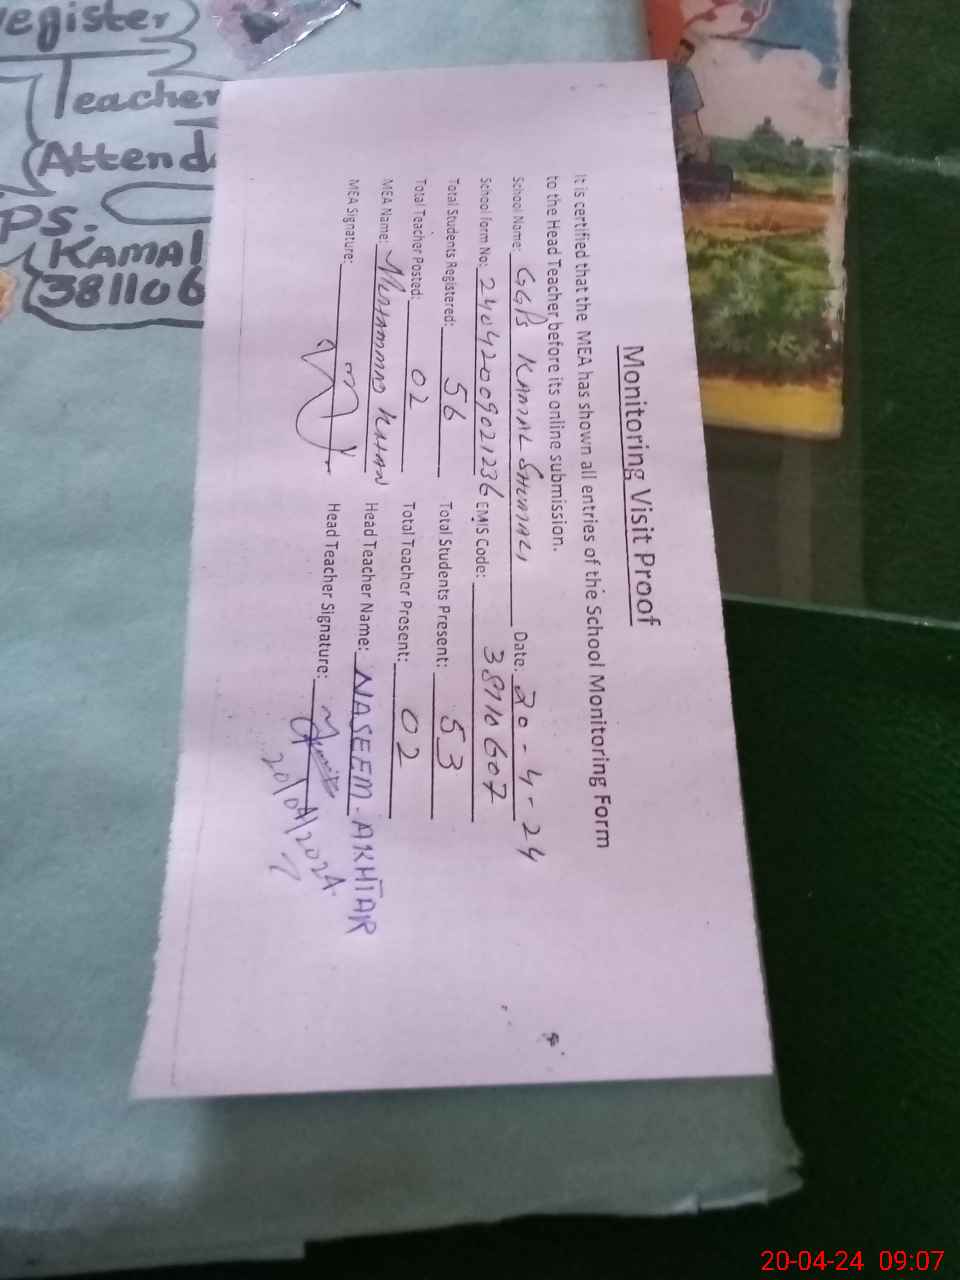 Register
Teacher
Attend
PS.
KAMAL
381106
Monitoring Visit Proof
It is certified that the MEA has shown all entries of the School Monitoring Form
to the Head Teacher before its online submission.
School Name: GGPS KAMAL SHUMALI Date: 20-4-24
School Form No: 24042009021236 EMIS Code: 38110607
Total Students Registered: 56 Total Students Present: 53
Total Teacher Posted: 02 Total Teacher Present: 02
MEA Name: MUHAMMAD KHAN Head Teacher Name: NASEEM-AKHTAR
MEA Signature: Head Teacher Signature:
20/04/2024
20-04-24 09:07